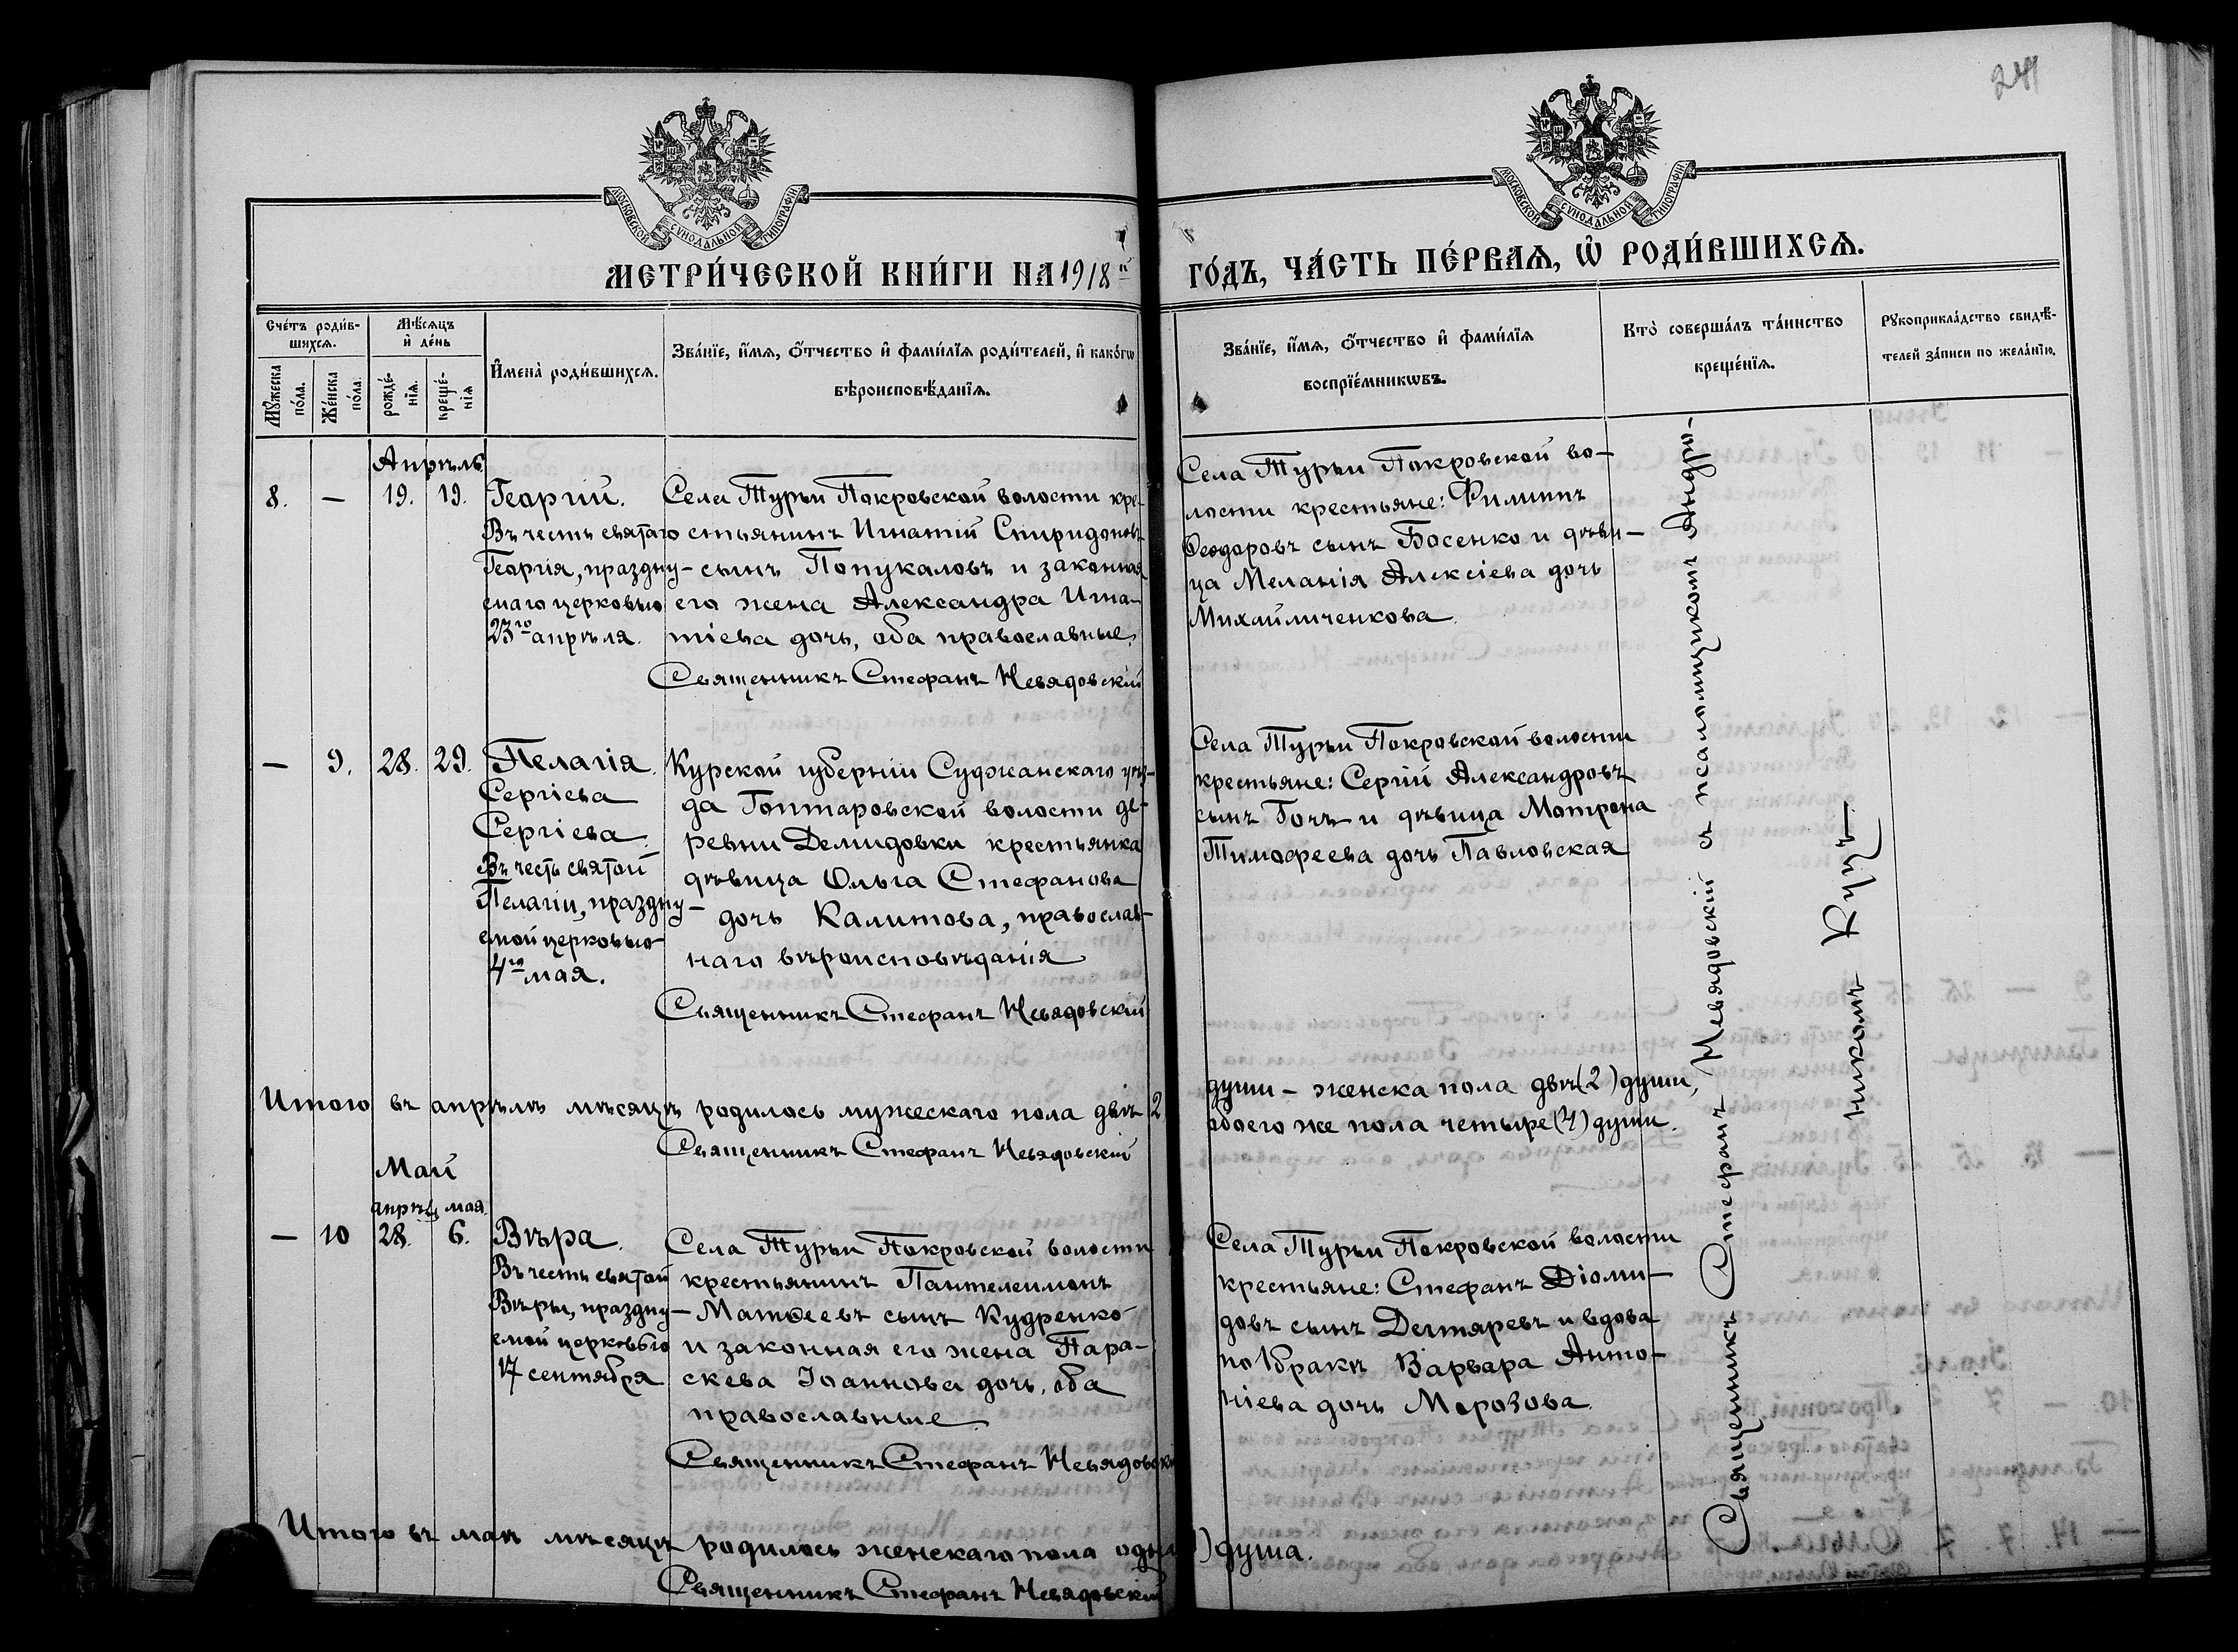 244
МОСКОВСКОЙ СѴНОДАЛЬНОЙ ТИПОГРАФІИ
МОСКОВСКОЙ СѴНОДАЛЬНОЙ ТИПОГРАФІИ
МЕТРИ́ЧЕСКОЙ КНИ́ГИ НА 1918й
ГО́ДЪ, ЧА́СТЬ ПЕ́РВАЯ, Ѡ҆ РОДИ́ВШИХСЯ.
Сче́тъ роди́в-
шихся.
Мѣ́сяцъ
и҆ де́нь
Мꙋ́жеска
по́ла.
Же́нска
по́ла.
рожде́-
нїя.
креще́-
нїя
И҆мена̀ роди́вшихся.
Зва́нїе, и҆́мя, ѻ҆́тчество и҆ фами́лїя роди́телей, и҆ како́гѡ
вѣроисповѣ́данїя.
Зва́нїе, и҆́мя, ѻ҆́тчество и҆ фами́лїя
воспрїе́мникѡвъ.
Кто̀ соверша́лъ та́инство
креще́нїя.
Рꙋкоприкла́дство свидѣ́-
телей за́писи по жела́нїю.
Апрѣль
8. — 19. 19.
Георгій.
Въ честь святаго
Георгія, праздну-
емаго церковью
23го апрѣля.
Села Турьи Покровской волости кре-
стьянинъ Игнатій Спиридоновъ
сынъ Попукаловъ и законная
его жена Александра Игна-
тіева дочь, оба православные.
Священникъ Стефанъ Невядовскій
Села Турьи Покровской во-
лости крестьяне: Филиппъ
Ѳеодоровъ сынъ Босенко и дѣви-
ца Меланія Алексіева дочь
Михайличенкова.
— 9. 28. 29.
Пелагія.
Сергіева
Сергіева.
Въ честь святой
Пелагіи, праздну-
емой церковью
4го мая.
Курской губерніи Суджанскаго уѣз-
да Гоптаровской волости де-
ревни Демидовки крестьянка
дѣвица Ольга Стефанова
дочь Калитова, православ-
наго вѣроисповѣданія
Священникъ Стефанъ Невядовскій
Села Турьи Покровской волости
крестьяне: Сергій Александровъ
сынъ Гочъ и дѣвица Матрона
Тимофеева дочь Павловская
Итого въ апрѣлѣ мѣсяцѣ родилось мужескаго пола двѣ (2
души – женска пола двѣ (2) души,
обоего же пола четыре (4) души.
Священникъ Стефанъ Невядовскій
Май
апрѣл мая.
— 10 28. 6.
Вѣра.
Въ честь святой
Вѣры, праздну-
емой церковью
17 сентября
Села Турьи Покровской волости
крестьянинъ Пантелеимонъ
Матѳеевъ сынъ Кудренко
и законная его жена Пара-
скева Іоаннова дочь, оба
православные
Священникъ Стефанъ Невядовскій
Села Турьи Покровской волости
крестьяне: Стефанъ Діоми-
довъ сынъ Дегтяревъ и вдова
по 1 бракѣ Варвара Анто-
ніева дочь Морозова.
Итого въ маѣ мѣсяцѣ родилось женскаго пола одна 1) душа.
Священникъ Стефанъ Невядовскій
Священникъ Стефанъ Невядовскій съ псаломщикомъ Андро-
никомъ Куцъ